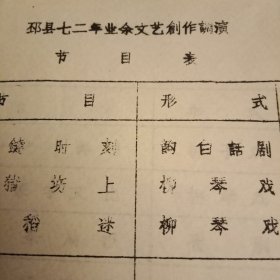 邳县七二年业余文艺创作調演
节 目 表
节 目 形 式
鐃 時 刻 韵 白 話 剧
猪 坊 上 柳 琴 戏
稻 迷 柳 琴 戏